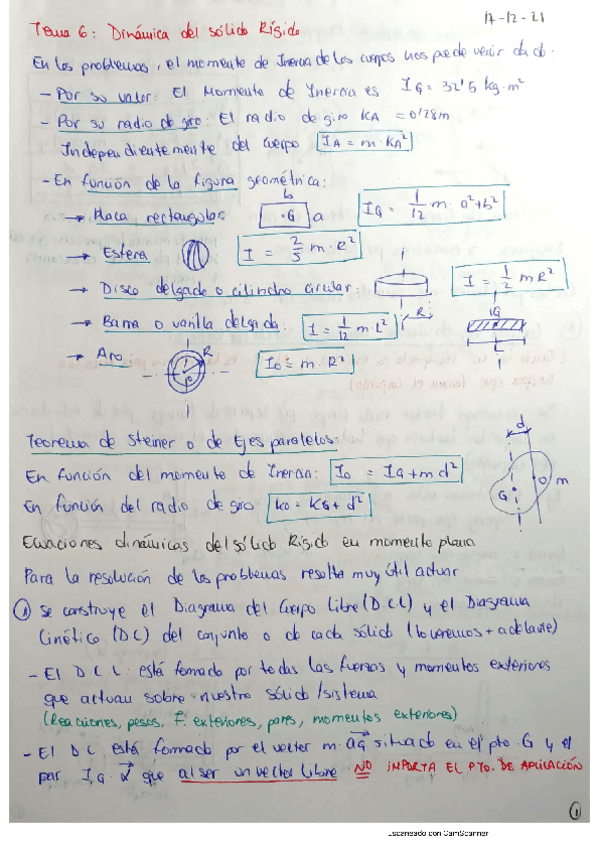 17-12-21
Tema 6: Dinámica del sólido Rígido
En los problemas, el momento de Inercia de los cuerpos nos puede venir dado:
- Por su valor: El Momento de Inercia es IG = 32'5 kg·m²
- Por su radio de giro: El radio de giro KA = 0'28m
Independientemente del cuerpo IA = m·KA²
- En función de la figura geométrica:
→ Placa rectangular b ·G a IG = 1/12 m·a²+b²
→ Esfera I = 2/5 m·R²
→ Disco delgado o cilindro circular: R I = 1/2 mR²
→ Barra o varilla delgada: I = 1/12 m·L² G L
→ Aro: R O Io = m·R²
Teorema de Steiner o de Ejes paralelos: d
En función del momento de Inercia: Io = IG+md² G O m
En función del radio de giro: ko = KG+d²
Ecuaciones dinámicas del sólido Rígido en momento plana
Para la resolución de los problemas resulta muy útil actuar
① se construye el Diagrama del Cuerpo Libre (DCL) y el Diagrama
Cinético (DC) del conjunto o de cada sólido (lo veremos + adelante)
- El DCL: está formado por todas las fuerzas y momentos exteriores
que actuan sobre nuestro sólido/sistema
(Reacciones, pesos, F. exteriores, pares, momentos exteriores)
- El DC está formado por el vector m·aG situado en el pto. G y el
par IG·α que al ser un vector libre NO IMPORTA EL PTO. DE APLICACIÓN
①
Escaneado con CamScanner